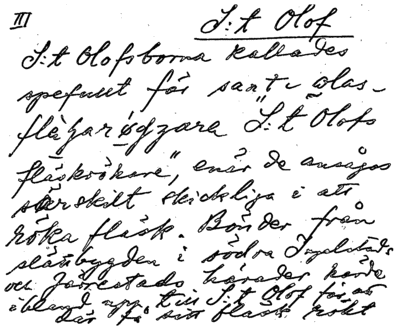 III
S:t Olof
S:t Olofsborna kallades
spefullt för sant
"S:t Olofs
fläskrökare", enär de ansågos
särskilt skickliga i att
röka fläsk. Bönder från
slättbygden i södra Ingelstads
och Järrestads härader körde
ibland upp till S:t Olof för att
där få sitt fläsk rökt